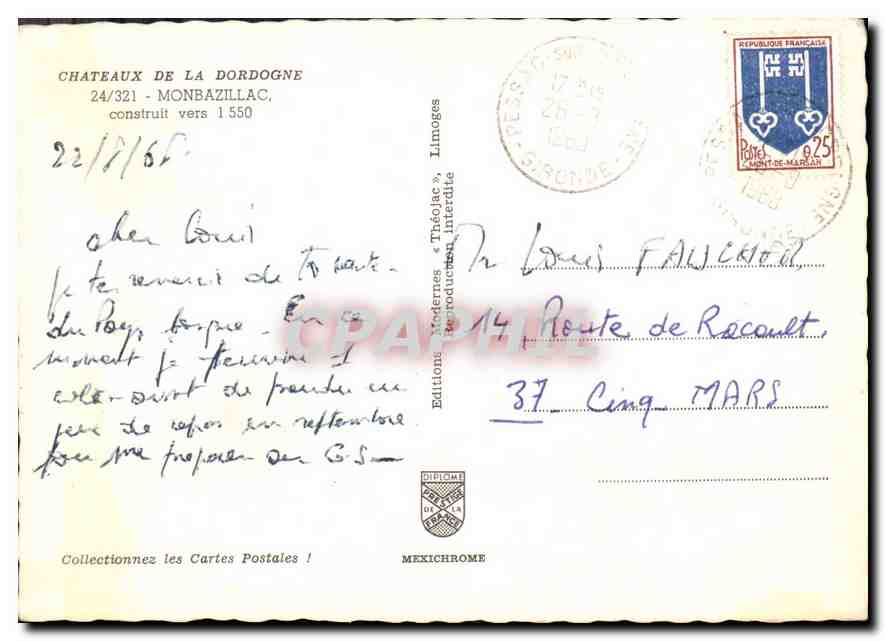 CHATEAUX DE LA DORDOGNE
24/321 - MONBAZILLAC,
construit vers 1 550
cher Louis
je te remercie de ta carte
du Pays basque. En ce
moment je termine 1
avant de prendre un
peu de repos en septembre
pour me préparer au C.S
Collectionnez les Cartes Postales !
Editions Modernes « Théojac », Limoges
Reproduction interdite
DIPLOME
PRESTIGE
DE LA
FRANCE
MEXICHROME
PESSAC
GIRONDE
REPUBLIQUE FRANÇAISE
POSTES 0,25
MONT-DE-MARSAN
Mr Louis FAUCHOU
14, Route de Racault,
37 Cinq MARS
CPAPHIL